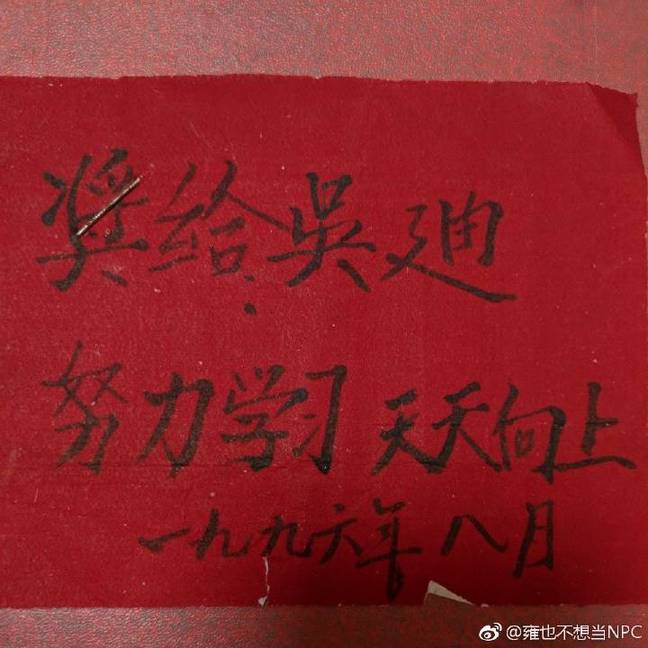 奖给吳迪
努力学习 天天向上
一九九六年八月
@雍也不想当NPC